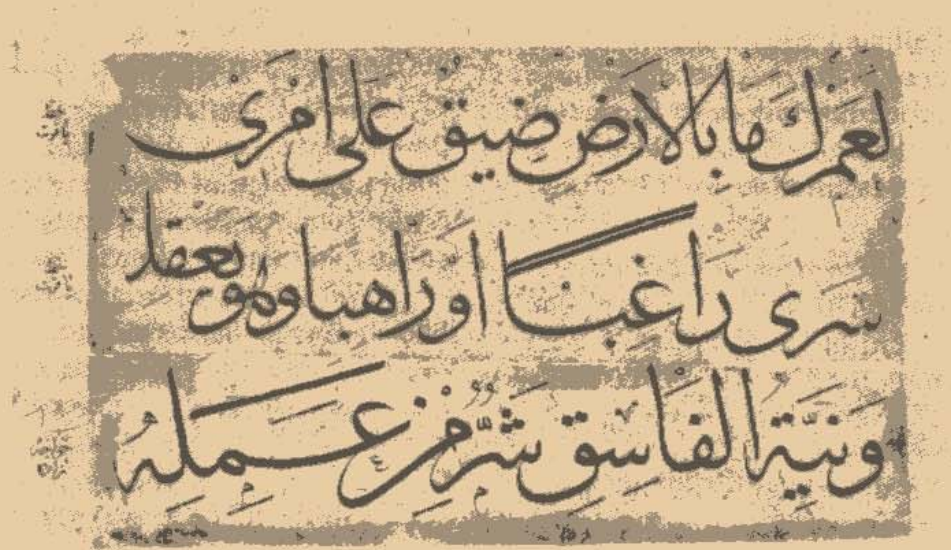 لَعَمْرُكَ مَا بِالأَرْضِ ضِيقٌ عَلَى امْرِئٍ
سَرَى رَاغِبًا اَوْ رَاهِبًا وَهُوَ يَعْقِلُ
وَنِيَّةُ الْفَاسِقِ شَرٌّ مِنْ عَمَلِهِ